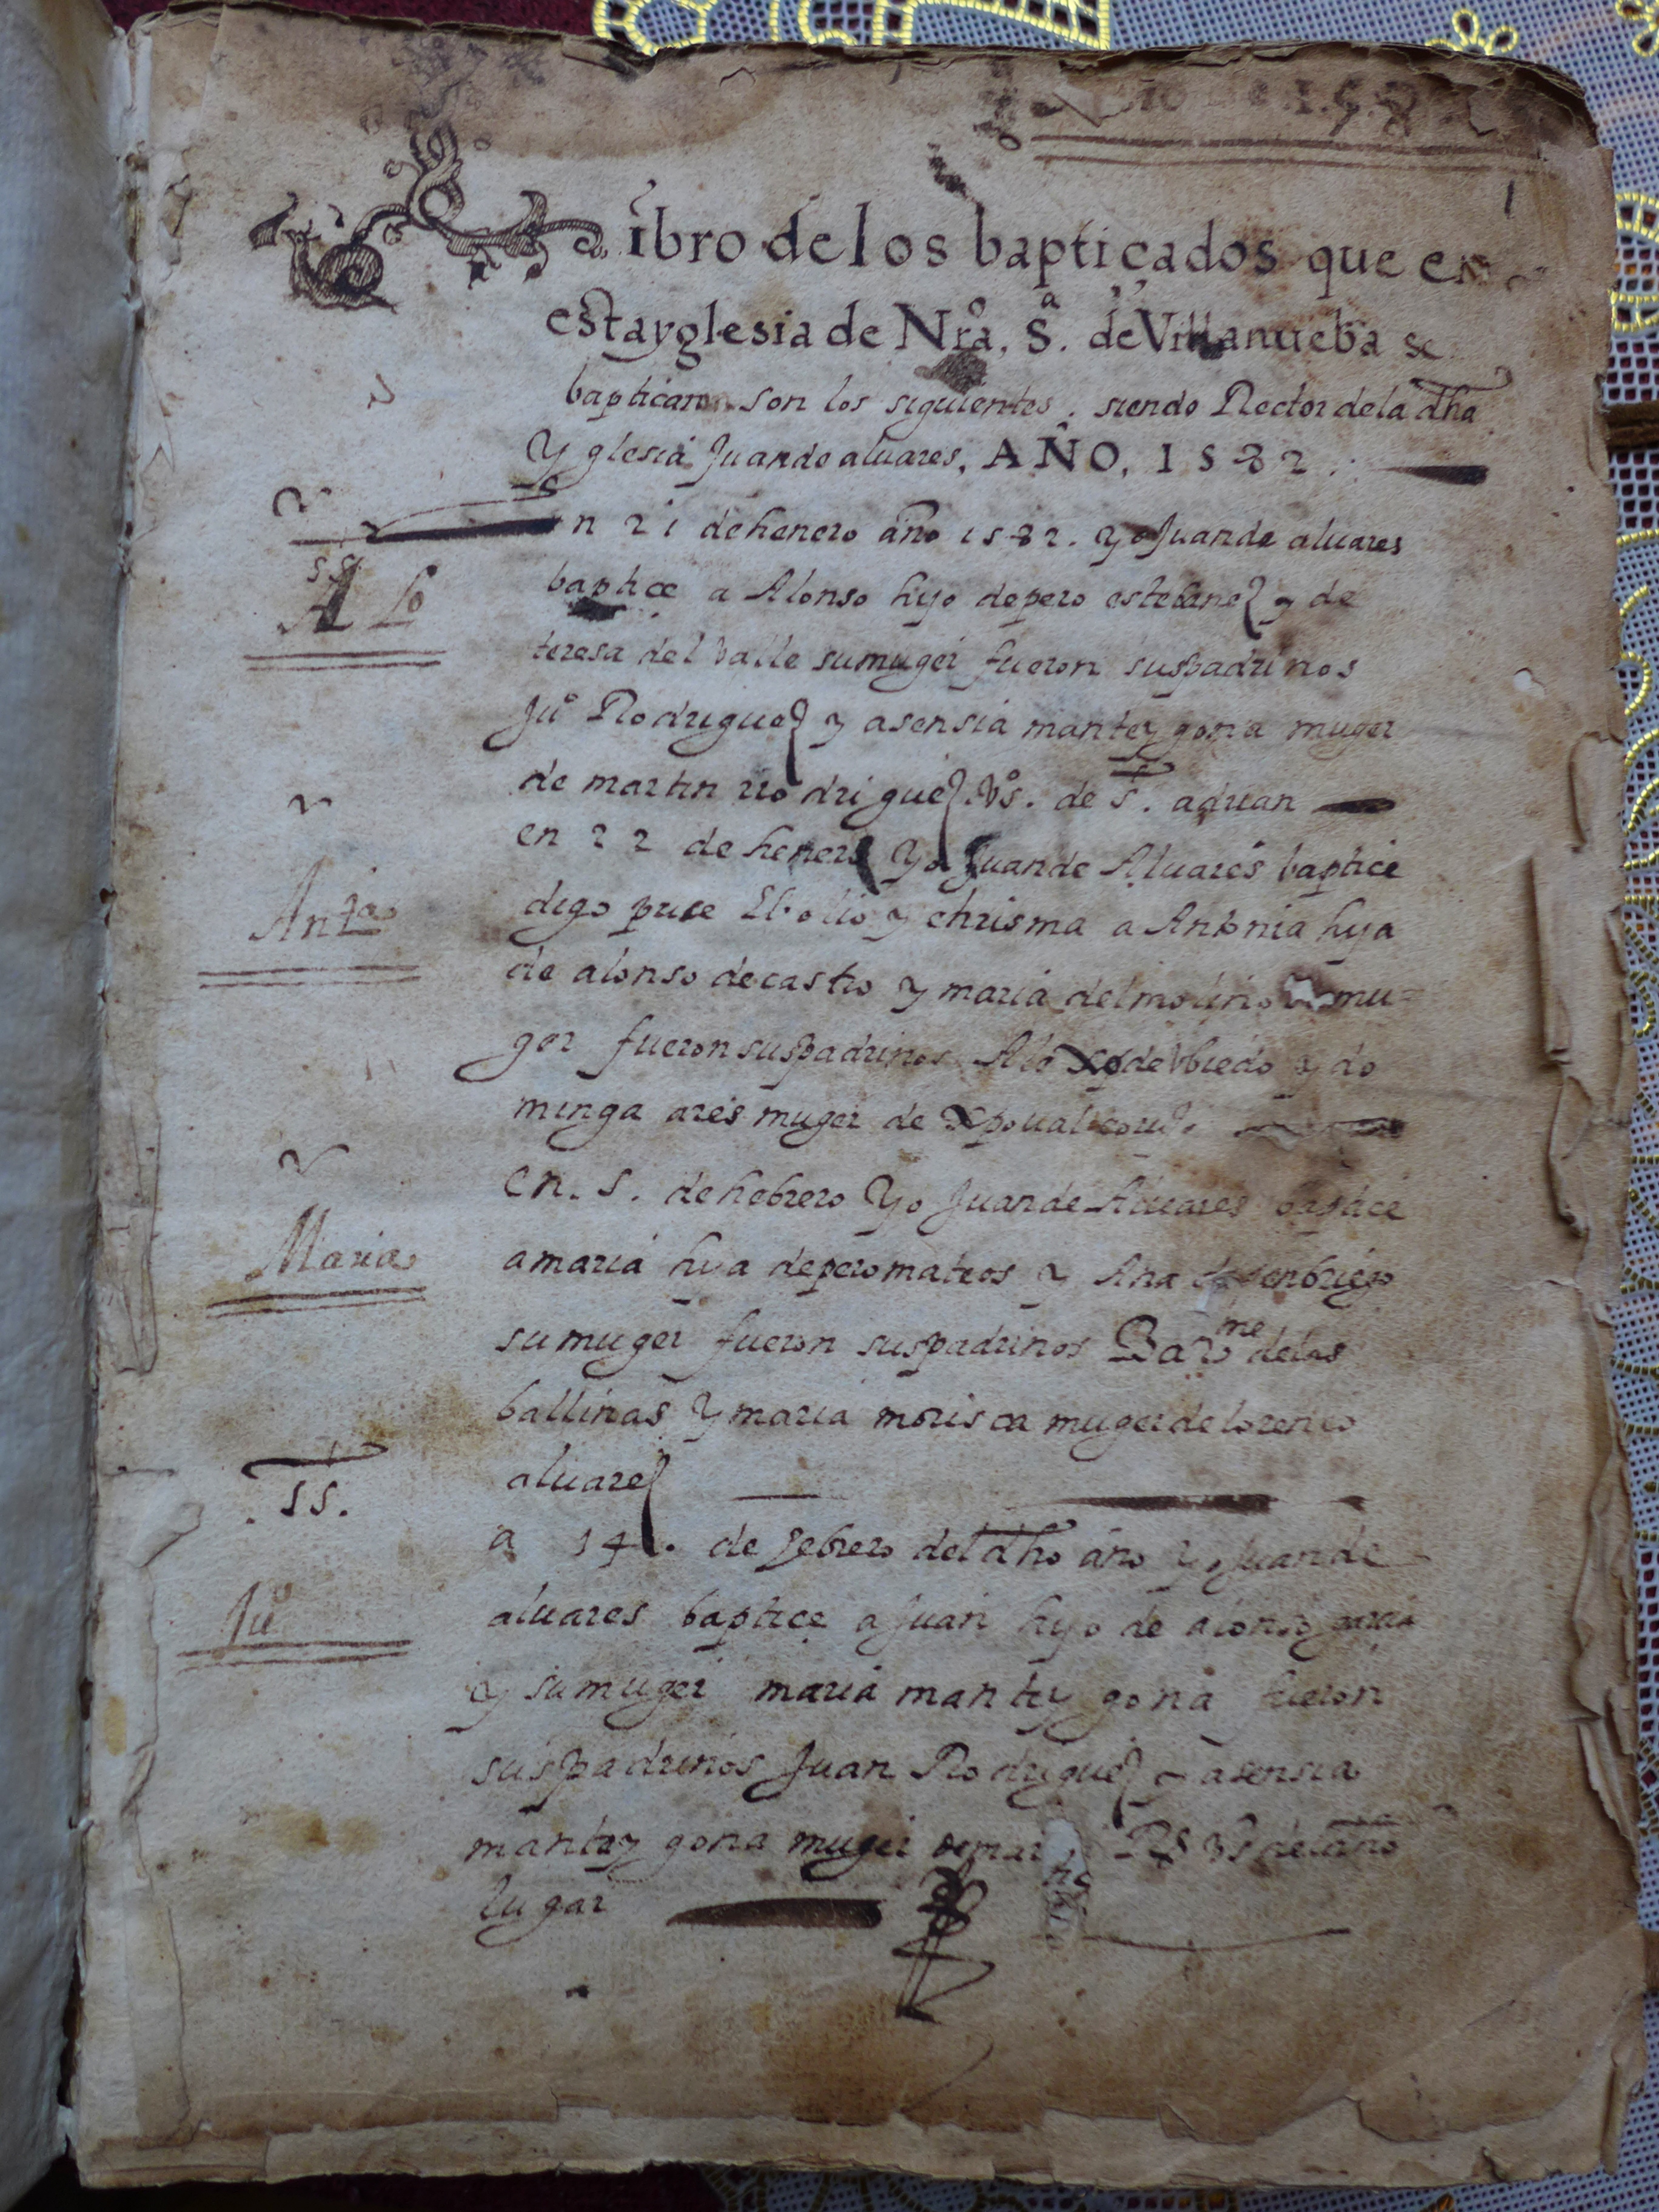 Año de 1.5.8
1
Libro de los bapticados que en
esta yglesia de Nra. Sª. de Villanueba se
baptican son los siguientes. siendo Rector de la dha
Yglesia Juan de aluares, AÑO, 1582.
En 21 de henero año 1582. yo Juan de aluares
ss.
Alo
baptice a Alonso hijo de pero estebanez y de
teresa del Valle su muger fueron sus padrinos
Juº Rodriguez y asensia manteygona muger
de martin rrodriguez Vºs. de S. adrian
en 22 de henero Yo Juan de Aluares baptice
Anta
digo puse El olio y chrisma a Antonia hija
de alonso de castro y maria del molino su mu-
ger fueron sus padrinos Alo de Vbiedo y do
minga ares muger de xpoual
en. 5. de hebrero Yo Juan de Aluares baptice
Maria
a maria hija de pero mateos y Ana
su muger fueron sus padrinos Barme de las
ballinas y maria morisca muger de lorenco
aluarez
.ss.
a 14. de febrero del dho año yo Juan de
Juº
aluares baptice a Juan hijo de alonso garcia
y su muger maria manteygona fueron
sus padrinos Juan Rodriguez y asensia
manteygona muger de martin Rs Vs de dho
lugar